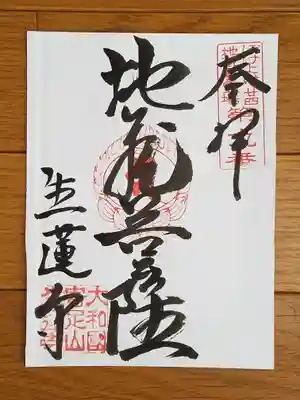 奉拝
地蔵菩薩
生蓮寺
大和国